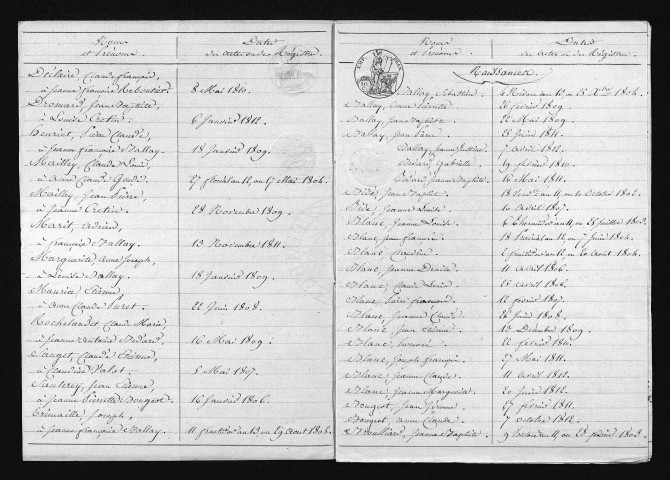 Noms et Prénoms.
Dates des actes ou des Registres.
Declaire, Claude françois,
à Jeanne françoise Reboutier. 8 Mai 1810.
Dromard, Jean Baptiste,
à Louise Cretin. 6 Janvier 1812.
Henriet, Pierre Claude,
à Jeanne françoise Ballay. 18 Janvier 1809.
Mailley, Claude Louis,
à Anne Claude 27 floréal an 12, ou 17 Mai 1804.
Mailley, Jean Pierre,
à Jeanne Cretin. 28 Novembre 1809.
Adrien,
à françoise Ballay. 13 Novembre 1811.
Marguerite, Anne Joseph,
à Louise Ballay. 18 Janvier 1809
Maurice Etienne,
à Anne Claude 22 Juin 1808.
Claude Marie,
à Jeanne Antoine Bedard. 16 Mai 1809.
Claude Etienne,
à Claudine 5 Mai 1807.
Jean Etienne,
à Jeanne Pierrette Bougeot. 16 Janvier 1806.
Joseph,
à Jeanne françoise Ballay. 11 fructidor an 13 ou 29 Août 1805.
Noms et Prénoms.
Dates des actes ou des Registres.
Naissances.
Ballay, Sébastien. 4 Nivose an 13 ou 25 Xbre 1804.
Ballay, Anne Pierrette 26 février 1809.
Ballay, Jean Baptiste. 22 Mai 1809.
Ballay, Jean Pierre. 25 Janvier 1811.
Ballay, Jeanne 7 Avril 1812.
Bedard, Gabrielle. 19 février 1810.
Bedard, Jeanne Baptiste. 16 Mai 1811.
Bidé, Jeanne Baptiste. 18 Vendémiaire an 11 ou 10 Octobre 1802.
Bidé, Jeanne Louise. 10 Avril 1807.
Blanc, Jeanne Louise. 6 Thermidor an 11 ou 25 Juillet 1803.
Blanc, Jean françois. 18 Prairial an 12 ou 7 Juin 1804.
Blanc, Claudine. 2 fructidor an 12 ou 20 Août 1804.
Blanc, Jeanne Denise. 11 Avril 1806.
Blanc, Claude Louis. 25 Avril 1806.
Blanc, Pierre françois. 12 février 1807.
Blanc, Jeanne Claude. 26 Juin 1808.
Blanc, Jean Etienne. 13 Décembre 1809.
Blanc, Honoré. 22 février 1811.
Blanc, Joseph françois. 27 Mai 1811.
Blanc, Jeanne Claude. 11 Avril 1812.
Blanc, Jeanne Marguerite. 20 Juin 1812.
Bougeot, Jean Etienne. 27 février 1811.
Bougeot, Anne Claude. 7 Octobre 1812.
Jeanne Baptiste. 9 Ventose an 11 ou 28 février 1803.